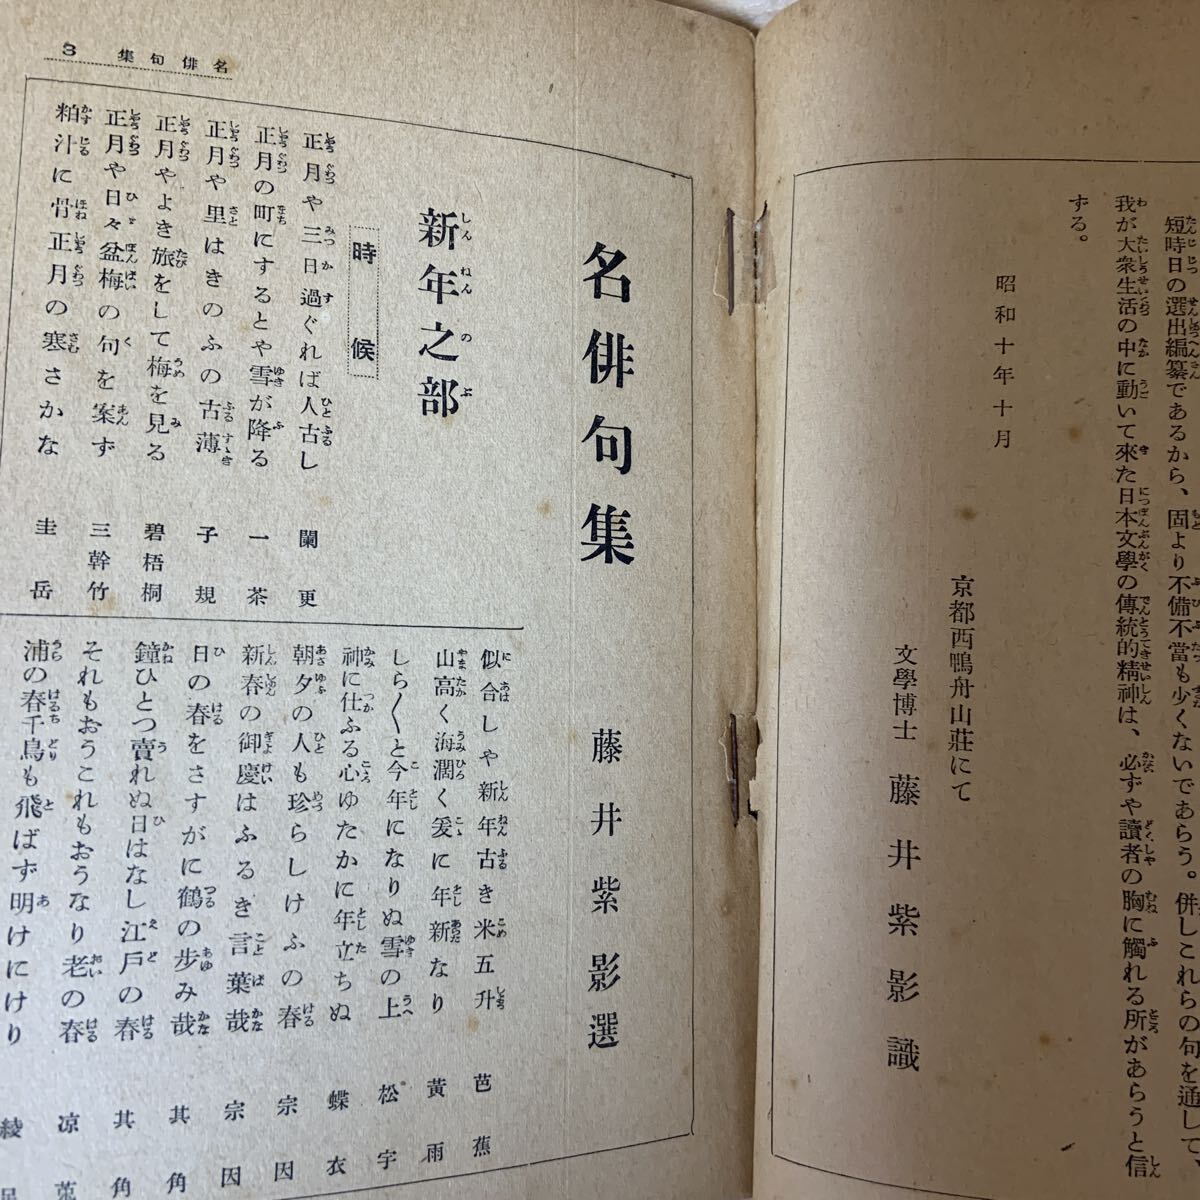 短時日の選出編纂であるから、固より不備不當も少くないであらう。併しこれらの句を通して、
我が大衆生活の中に動いて來た日本文學の傳統的精神は、必ずや讀者の胸に觸れる所があらうと信
ずる。
昭和十年十月
京都西鴨舟山莊にて
文學博士 藤井紫影識
名俳句集 藤井紫影選
新年之部
時候
正月や三日過ぐれば人古し 闌更
正月の町にするとや雪が降る 一茶
正月や里はきのふの古薄 子規
正月やよき旅をして梅を見る 碧梧桐
正月や日々盆梅の句を案ず 三幹竹
粕汁に骨正月の寒さかな 圭岳
似合しや新年古き米五升 芭蕉
山高く海濶く爰に年新なり 黃雨
しら〱と今年になりぬ雪の上 松宇
神に仕ふる心ゆたかに年立ちぬ 蝶衣
朝夕の人も珍らしけふの春 宗因
新春の御慶はふるき言葉哉 宗因
日の春をさすがに鶴の步み哉 其角
鐘ひとつ賣れぬ日はなし江戶の春 其角
それもおうこれもおうなり老の春 凉菟
浦の春千鳥も飛ばず明けにけり 綾足
名俳句集 3